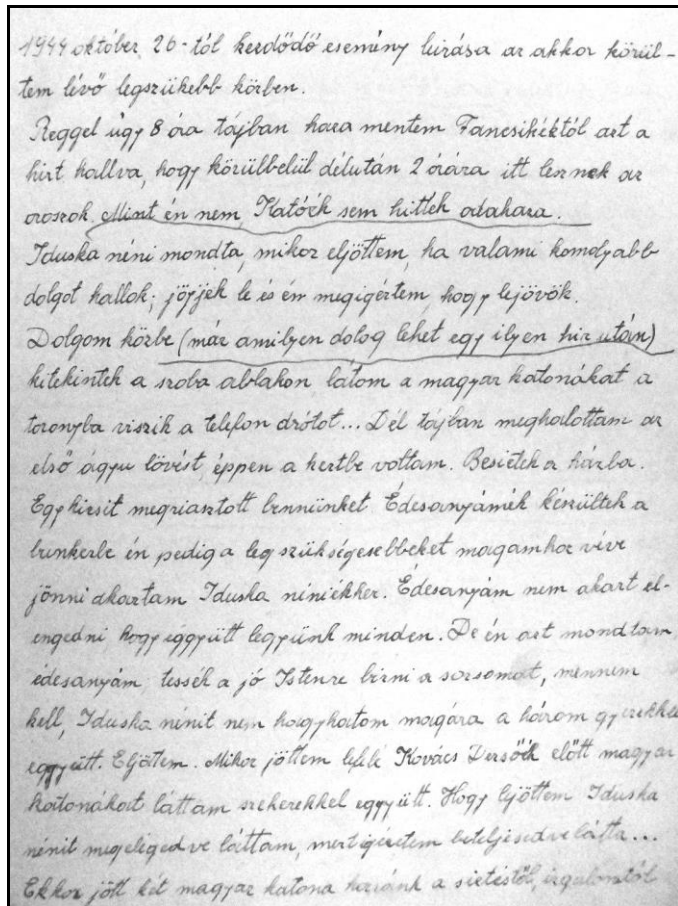 1944 október 26-tól kezdődő esemény leirása az akkor körül-
tem lévő legszükebb körben.
Reggel úgy 8 óra tájban haza mentem Fancsikéktól azt a
hirt hallva, hogy körülbelül délután 2 órára itt lesznek az
oroszok. Mint én nem, Katóék sem hittek odahaza.
Iduska néni mondta, mikor eljöttem, ha valami komolyabb
dolgot hallok, jöjjek le és én megigértem, hogy lejövök.
Dolgom közbe (már amilyen dolog lehet egy ilyen hir után)
kitekintek a szoba ablakon látom a magyar katonákat a
toronyba viszik a telefon drótot... Dél tájban meghalottam az
első ágyu lövést, éppen a kertbe voltam. Besietek a házba.
Egykicsit megriasztott bennünket Édesanyámék készültek a
bunkerbe én pedig a legszükségesebbeket magamhoz véve
jönni akartam Iduska néniékhez. Édesanyám nem akart el-
engedni hogy éggyütt legyünk minden. De én azt mondtam
édesanyám tessék a jó Istenre bizni a sorsomat, mennem
kell, Iduska nénit nem hagyhatom magára a három gyerekkel
eggyütt. Eljöttem. Mikor jöttem lefelé Kovács Dersőék előtt magyar
katonákat láttam szekerekkel eggyütt. Hogy lejöttem Iduska
nénit megelégedve láttam, mert igéretem beteljesedve látta...
Ekkor jött két magyar katona hozzánk a sietéstől, izgalomtól